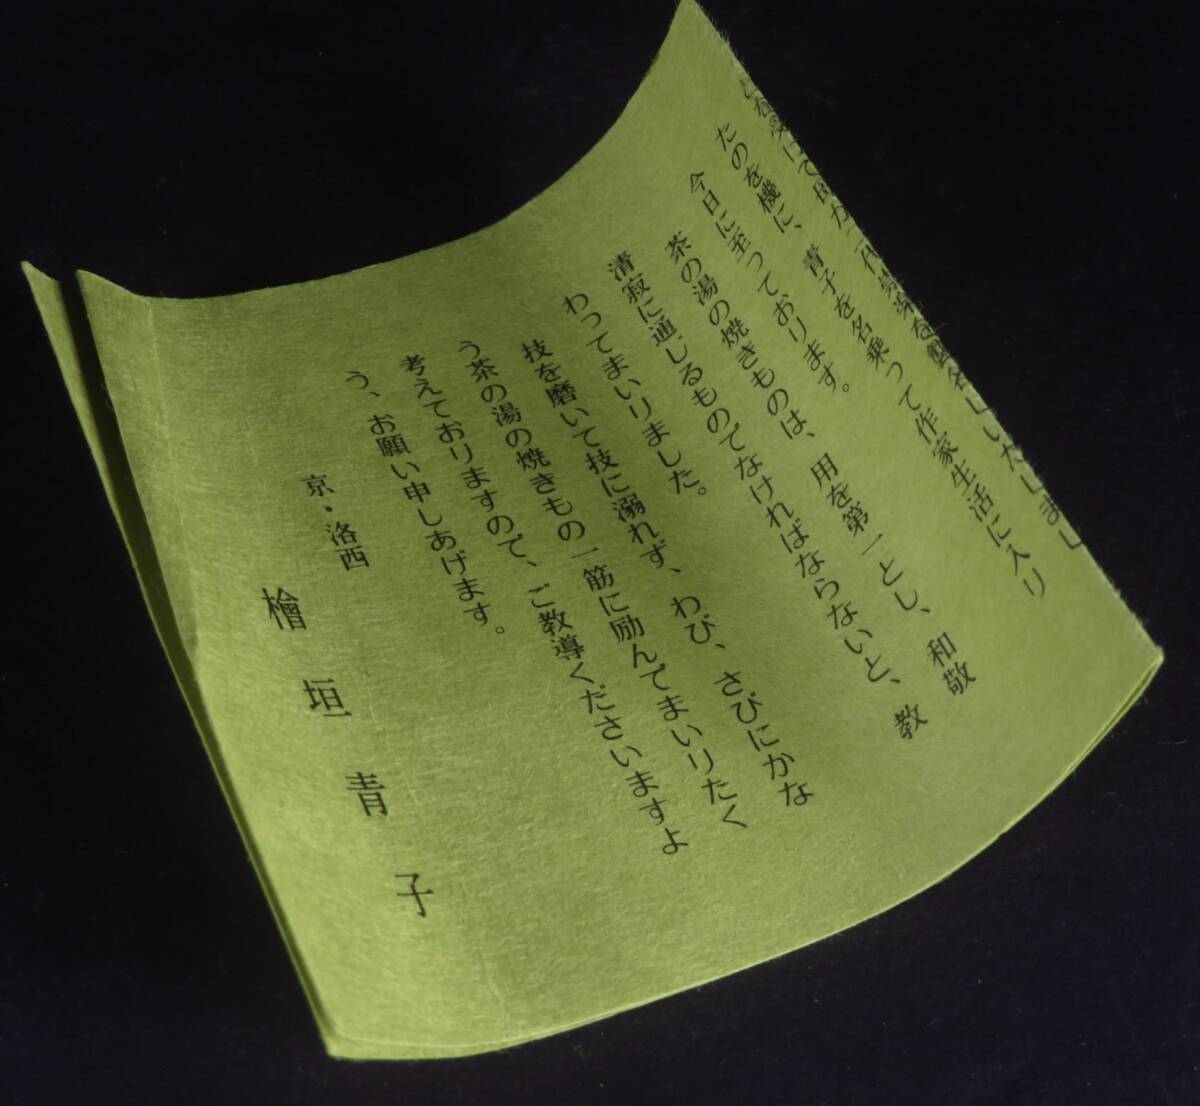 を受けて 代 を襲名いたしまし
たのを機に、青子を名乗って作家生活に入り
今日に至っております。
茶の湯の焼きものは、用を第一とし、和敬
清寂に通じるものでなければならないと、教
わってまいりました。
技を磨いて技に溺れず、わび、さびにかな
う茶の湯の焼きもの一筋に励んでまいりたく
考えておりますので、ご教導くださいますよ
う、お願い申しあげます。
京・洛西
檜垣青子